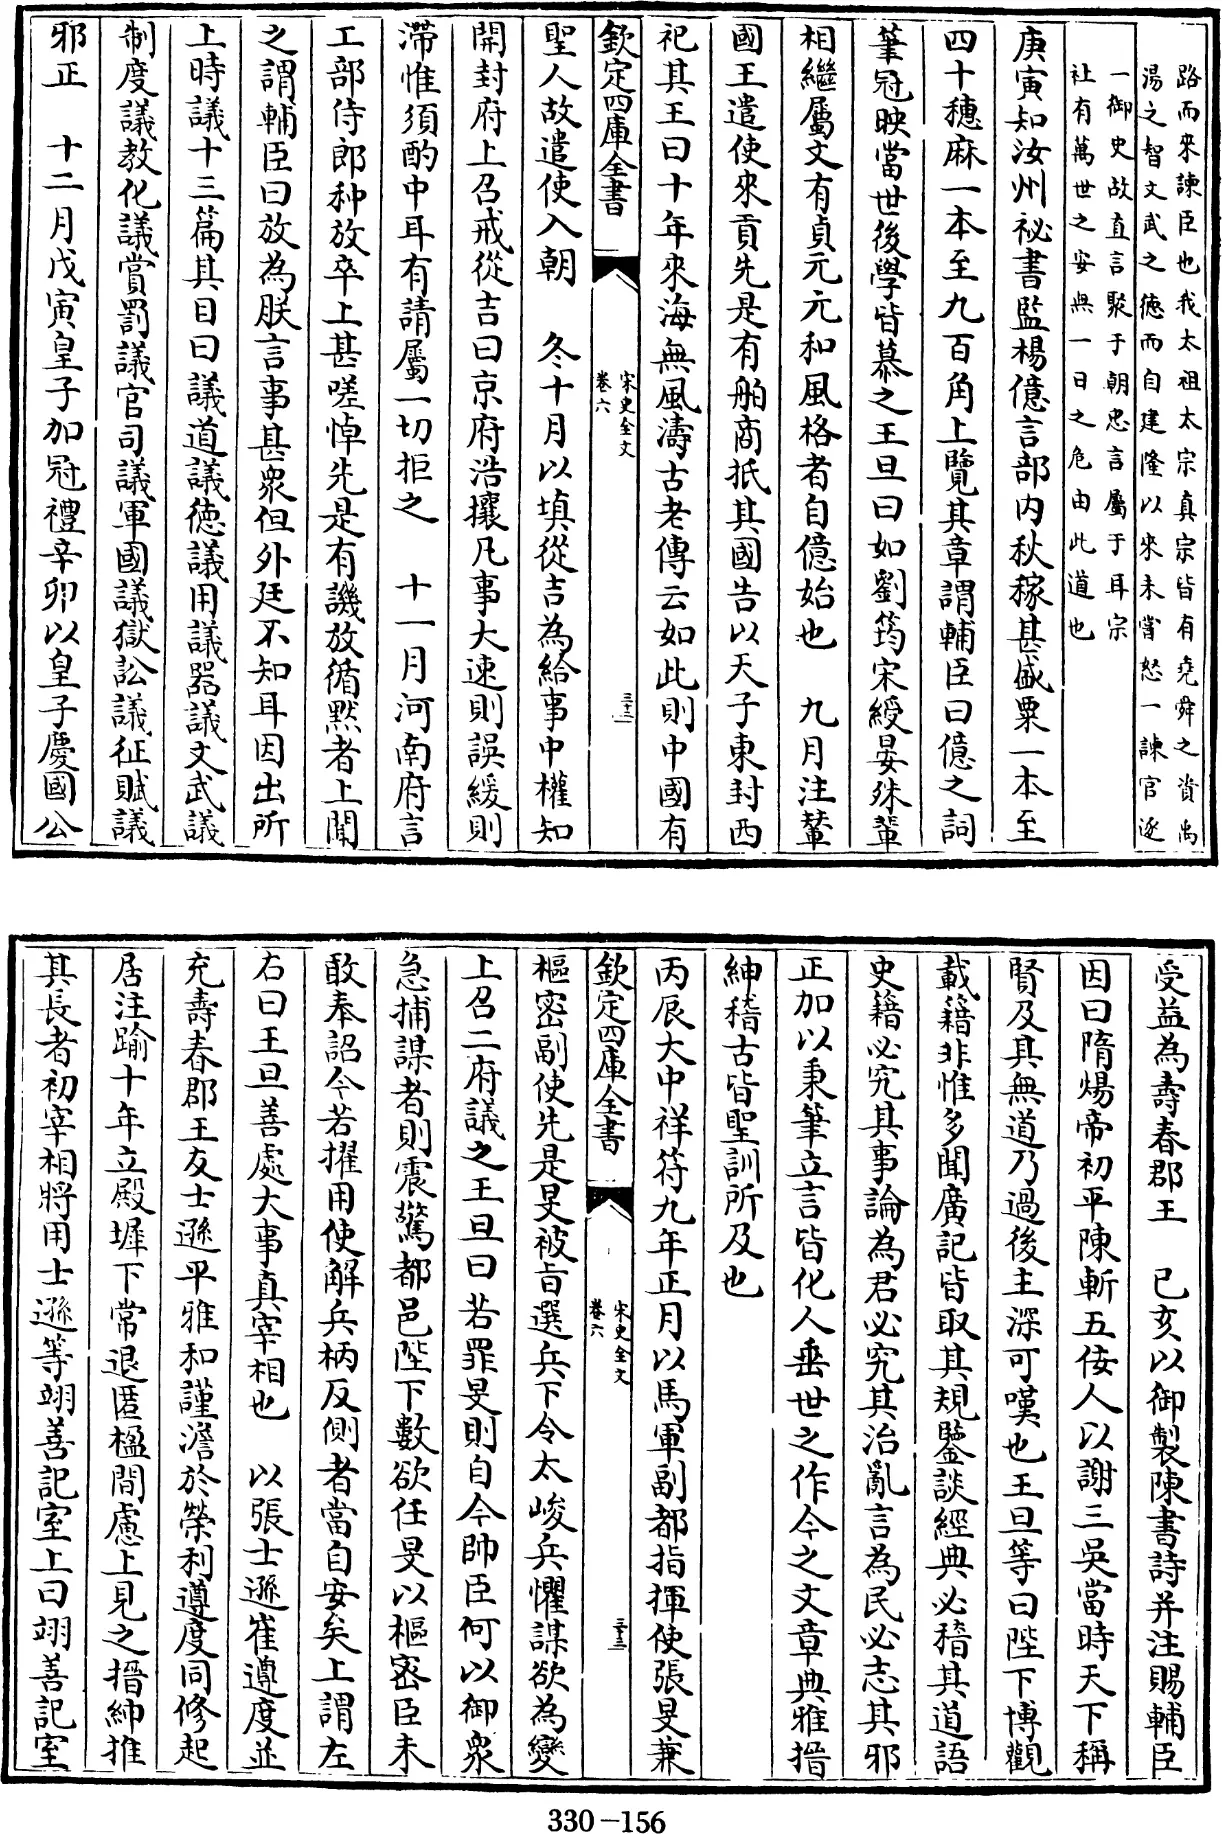 路而來諫臣也我太祖太宗真宗皆有堯舜之資禹
湯之智文武之德而自建隆以來未嘗怒一諫官逐
一御史故直言聚于朝忠言屬于耳宗
社有萬世之安無一日之危由此道也
庚寅知汝州祕書監楊億言部内秋稼甚盛粟一本至
四十穗麻一本至九百角上覽其章謂輔臣曰億之詞
筆冠映當世後學皆慕之王旦曰如劉筠宋綬晏殊輩
相繼屬文有貞元元和風格者自億始也　九月注輦
國王遣使來貢先是有舶商抵其國告以天子東封西
祀其王曰十年來海無風濤古老傳云如此則中國有
欽定四庫全書
宋史全文
卷六
三十二
聖人故遣使入朝　冬十月以填從吉為給事中權知
開封府上召戒從吉曰京府浩攘凡事大速則誤緩則
滯惟須酌中耳有請屬一切拒之　十一月河南府言
工部侍郎种放卒上甚嗟悼先是有譏放循黙者上聞
之謂輔臣曰放為朕言事甚衆但外廷不知耳因出所
上時議十三篇其目曰議道議德議用議器議文武議
制度議教化議賞罰議官司議軍國議獄訟議征賦議
邪正　十二月戊寅皇子加冠禮辛卯以皇子慶國公
受益為壽春郡王　已亥以御製陳書詩并注賜輔臣
因曰隋煬帝初平陳斬五佞人以謝三吳當時天下稱
賢及其無道乃過後主深可嘆也王旦等曰陛下博觀
載籍非惟多聞廣記皆取其規鑒談經典必稽其道語
史籍必究其事論為君必究其治亂言為民必志其邪
正加以秉筆立言皆化人垂世之作今之文章典雅搢
紳稽古皆聖訓所及也
丙辰大中祥符九年正月以馬軍副都指揮使張旻兼
欽定四庫全書
宋史全文
卷六
三十三
樞密副使先是旻被旨選兵下令太峻兵懼謀欲為變
上召二府議之王旦曰若罪旻則自今帥臣何以御衆
急捕謀者則震驚都邑陛下數欲任旻以樞密臣未
敢奉詔今若擢用使解兵柄反側者當自安矣上謂左
右曰王旦善處大事真宰相也　以張士遜崔遵度並
充壽春郡王友士遜平雅和謹澹於榮利遵度同修起
居注踰十年立殿墀下常退匿楹間慮上見之搢紳推
其長者初宰相將用士遜等翊善記室上曰翊善記室
330-156